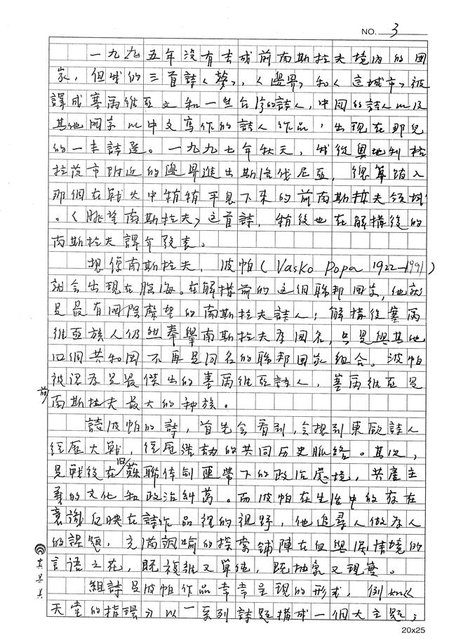 NO. 3
一九九五年沒有去成前南斯拉夫境內的國
家，但我的三首詩《夢》，《邊界》和《這城市》被
譯成塞爾維亞文和一些在台的詩人，中國的詩人以及
其他國家以中文寫作的詩人作品，出現在那兒
的一本詩選。一九九七年秋天，我從奧地利
邊界進出斯洛伐尼亞，總算踏入
那個在戰火中稍稍平息下來的前南斯拉夫領域
。《眺望南斯拉夫》這首詩，稍後也在解構後的
南斯拉夫譯介發表。
想像南斯拉夫，波帕(Vasko Popa 1922—1991)
就會出現在腦海。在解構前的這個聯邦國家，他就
是最有國際聲望的南斯拉夫詩人；解構後塞爾
維亞族人仍然奉舉南斯拉夫為國名，只是與其他
旧個共和國不再是同名的聯邦國家組合。波帕
被認為是最傑出的塞爾維亞詩人，塞爾維亞是
前南斯拉夫最大的种族。
談波帕的詩，首先會看到，會想到東歐詩人
經歷大戰，經歷浩劫的共同歷史脈絡。其次，
是戰後在旧蘇聯体制運帶下的政治處境，共產主
義的文化和政治糾葛。而波帕在生活中的存在
意識反映在詩作品裡的視野，他追尋人做為人
的課題，充滿諷喻的探索鋪陳在與情境的
言語之花，既複雜又單純，既抽象又現實。
組詩是波帕作品常常呈現的形式，例如《
天空的構環》以一系列詩題構成一個大主題；
20x25